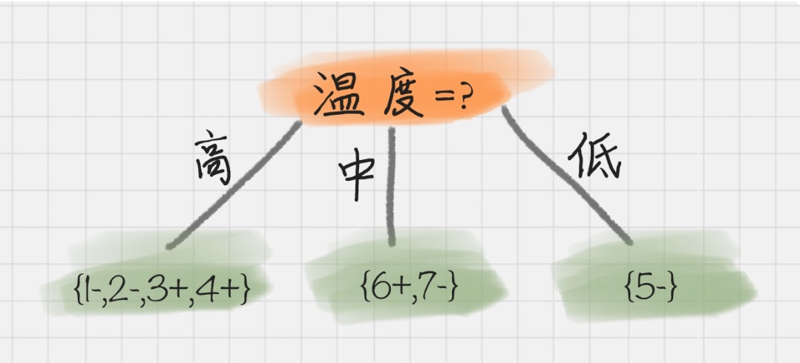 温度=?
高
中
低
{1-,2-,3+,4+}
{6+,7-}
{5-}